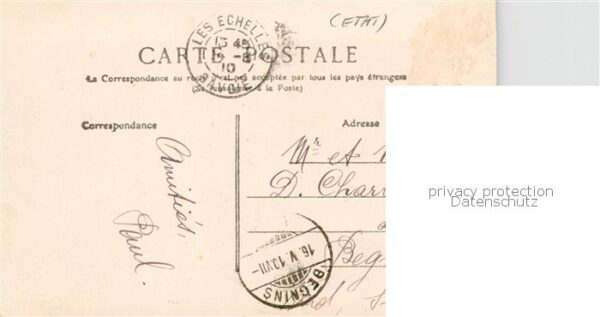 (ETAT)
LES ECHELLES
15 45
10
CARTE POSTALE
La Correspondance au recto n'est pas acceptée par tous les pays étrangers
(Se renseigner à la Poste)
Correspondance
Adresse
Amitiés,
Paul.
Mr et
D. Charr
Beg
16. V. 10. VII-
BEGNINS
privacy protection
Datenschutz